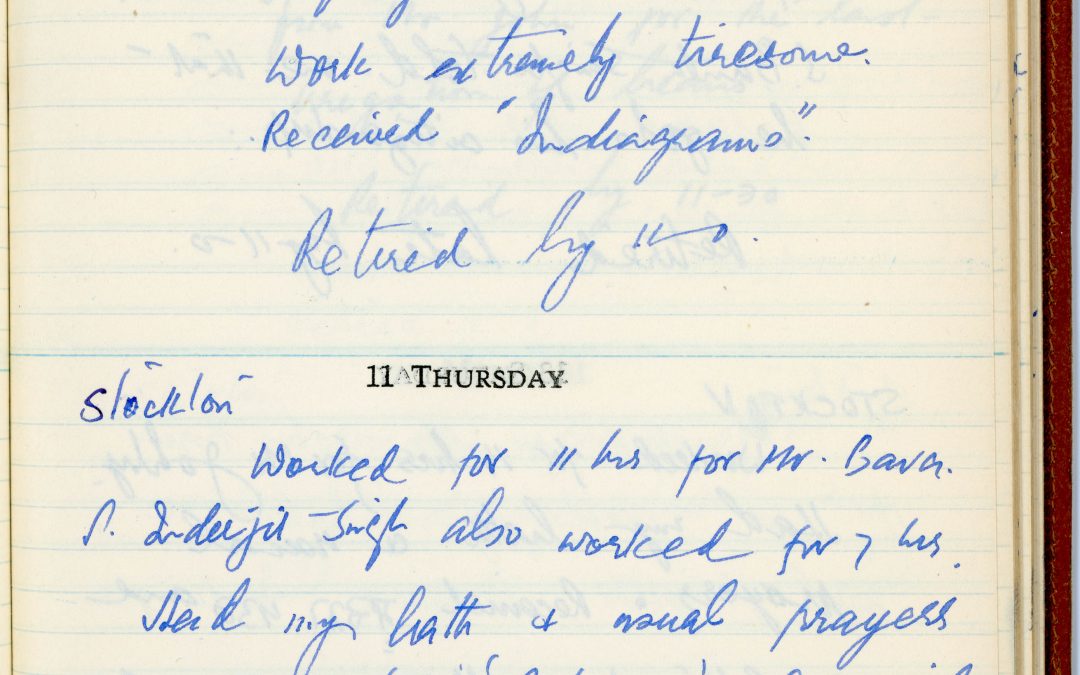 Work extremely tiresome.
Received "Indiagrams".
Retired by 11-0.
11 THURSDAY
Stockton
Worked for 11 hrs for Mr. Bava.
S. Inderjit Singh also worked for 7 hrs.
Had my bath & usual prayers